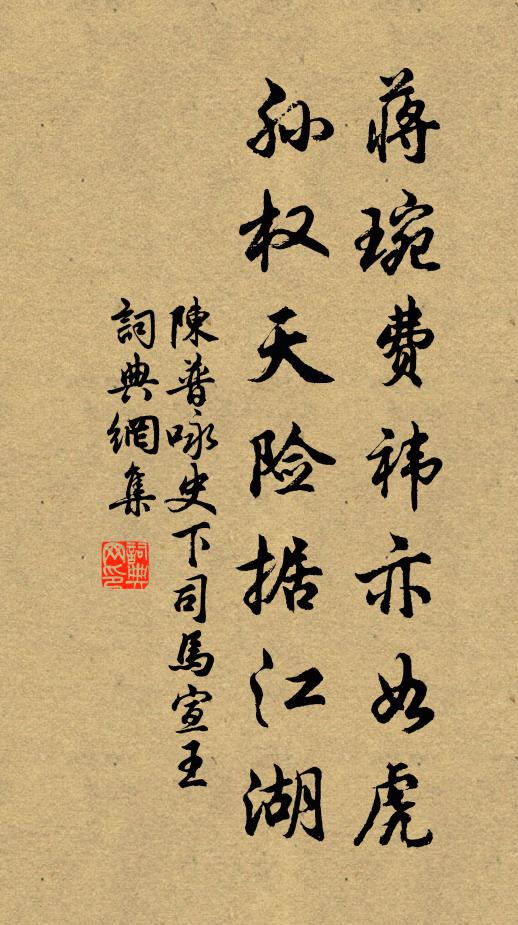 蔣琬費祎亦如虎
孙权天险据江湖
陳普咏史下司馬宣王
詞典網集
詞典网印